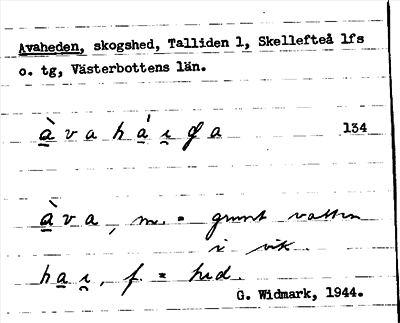 Avaheden, skogshed, Talliden 1, Skellefteå lfs
o. tg, Västerbottens län.
134
àva, m. = grunt vatten
i vik.
hai̯, f. = hed.
G. Widmark, 1944.